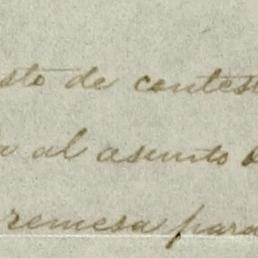 sto de contest
a al asunto
remesa para